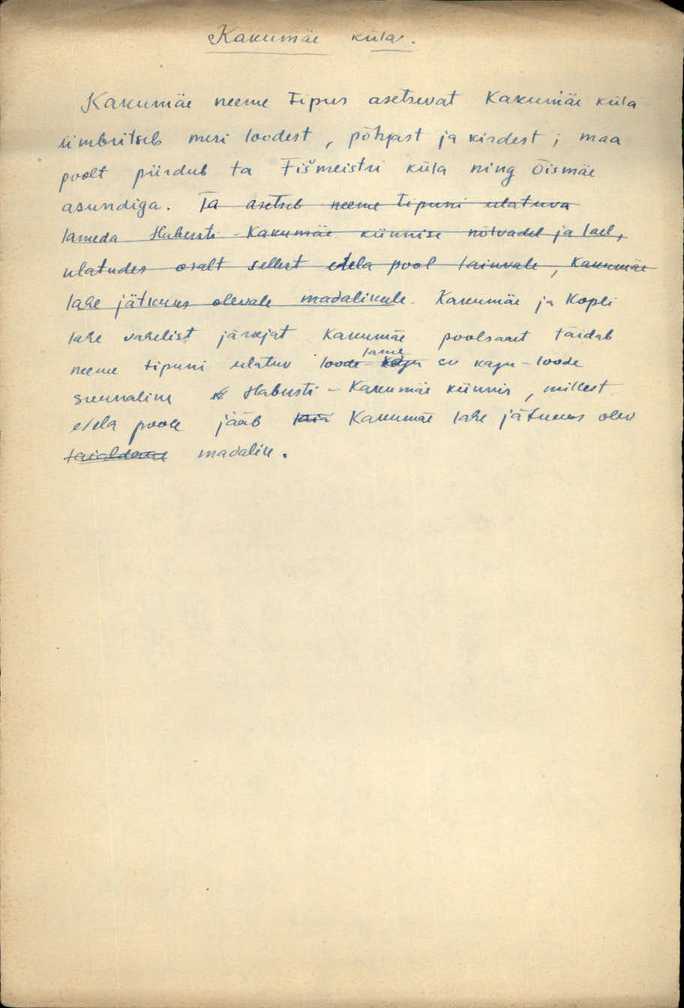 Kakumäe küla.
Kakumäe neeme tipus asetsevat Kakumäe küla
ümbritseb meri loodest, põhjast ja kirdest; maa
poolt piirdub ta Tišmeistri küla ning Õismäe
asundiga. Ta asetseb neeme tipuni ulatuva
lameda Habersti - Kakumäe künnise nõlvadel ja lael,
ulatudes osalt sellest edela pool lainvale, Kakumäe
lahe jätkuks olevale madalikule. Kakumäe ja Kopli
lahe vahelist järsejat Kakumäe poolsaart täidab
neeme tipuni ulatuv loode - lame kagu su kagu - loode
suunaline Habersti - Kakumäe künnis, millest
edela poole jääb Kakumäe lahe jätkuks olev
madalik.